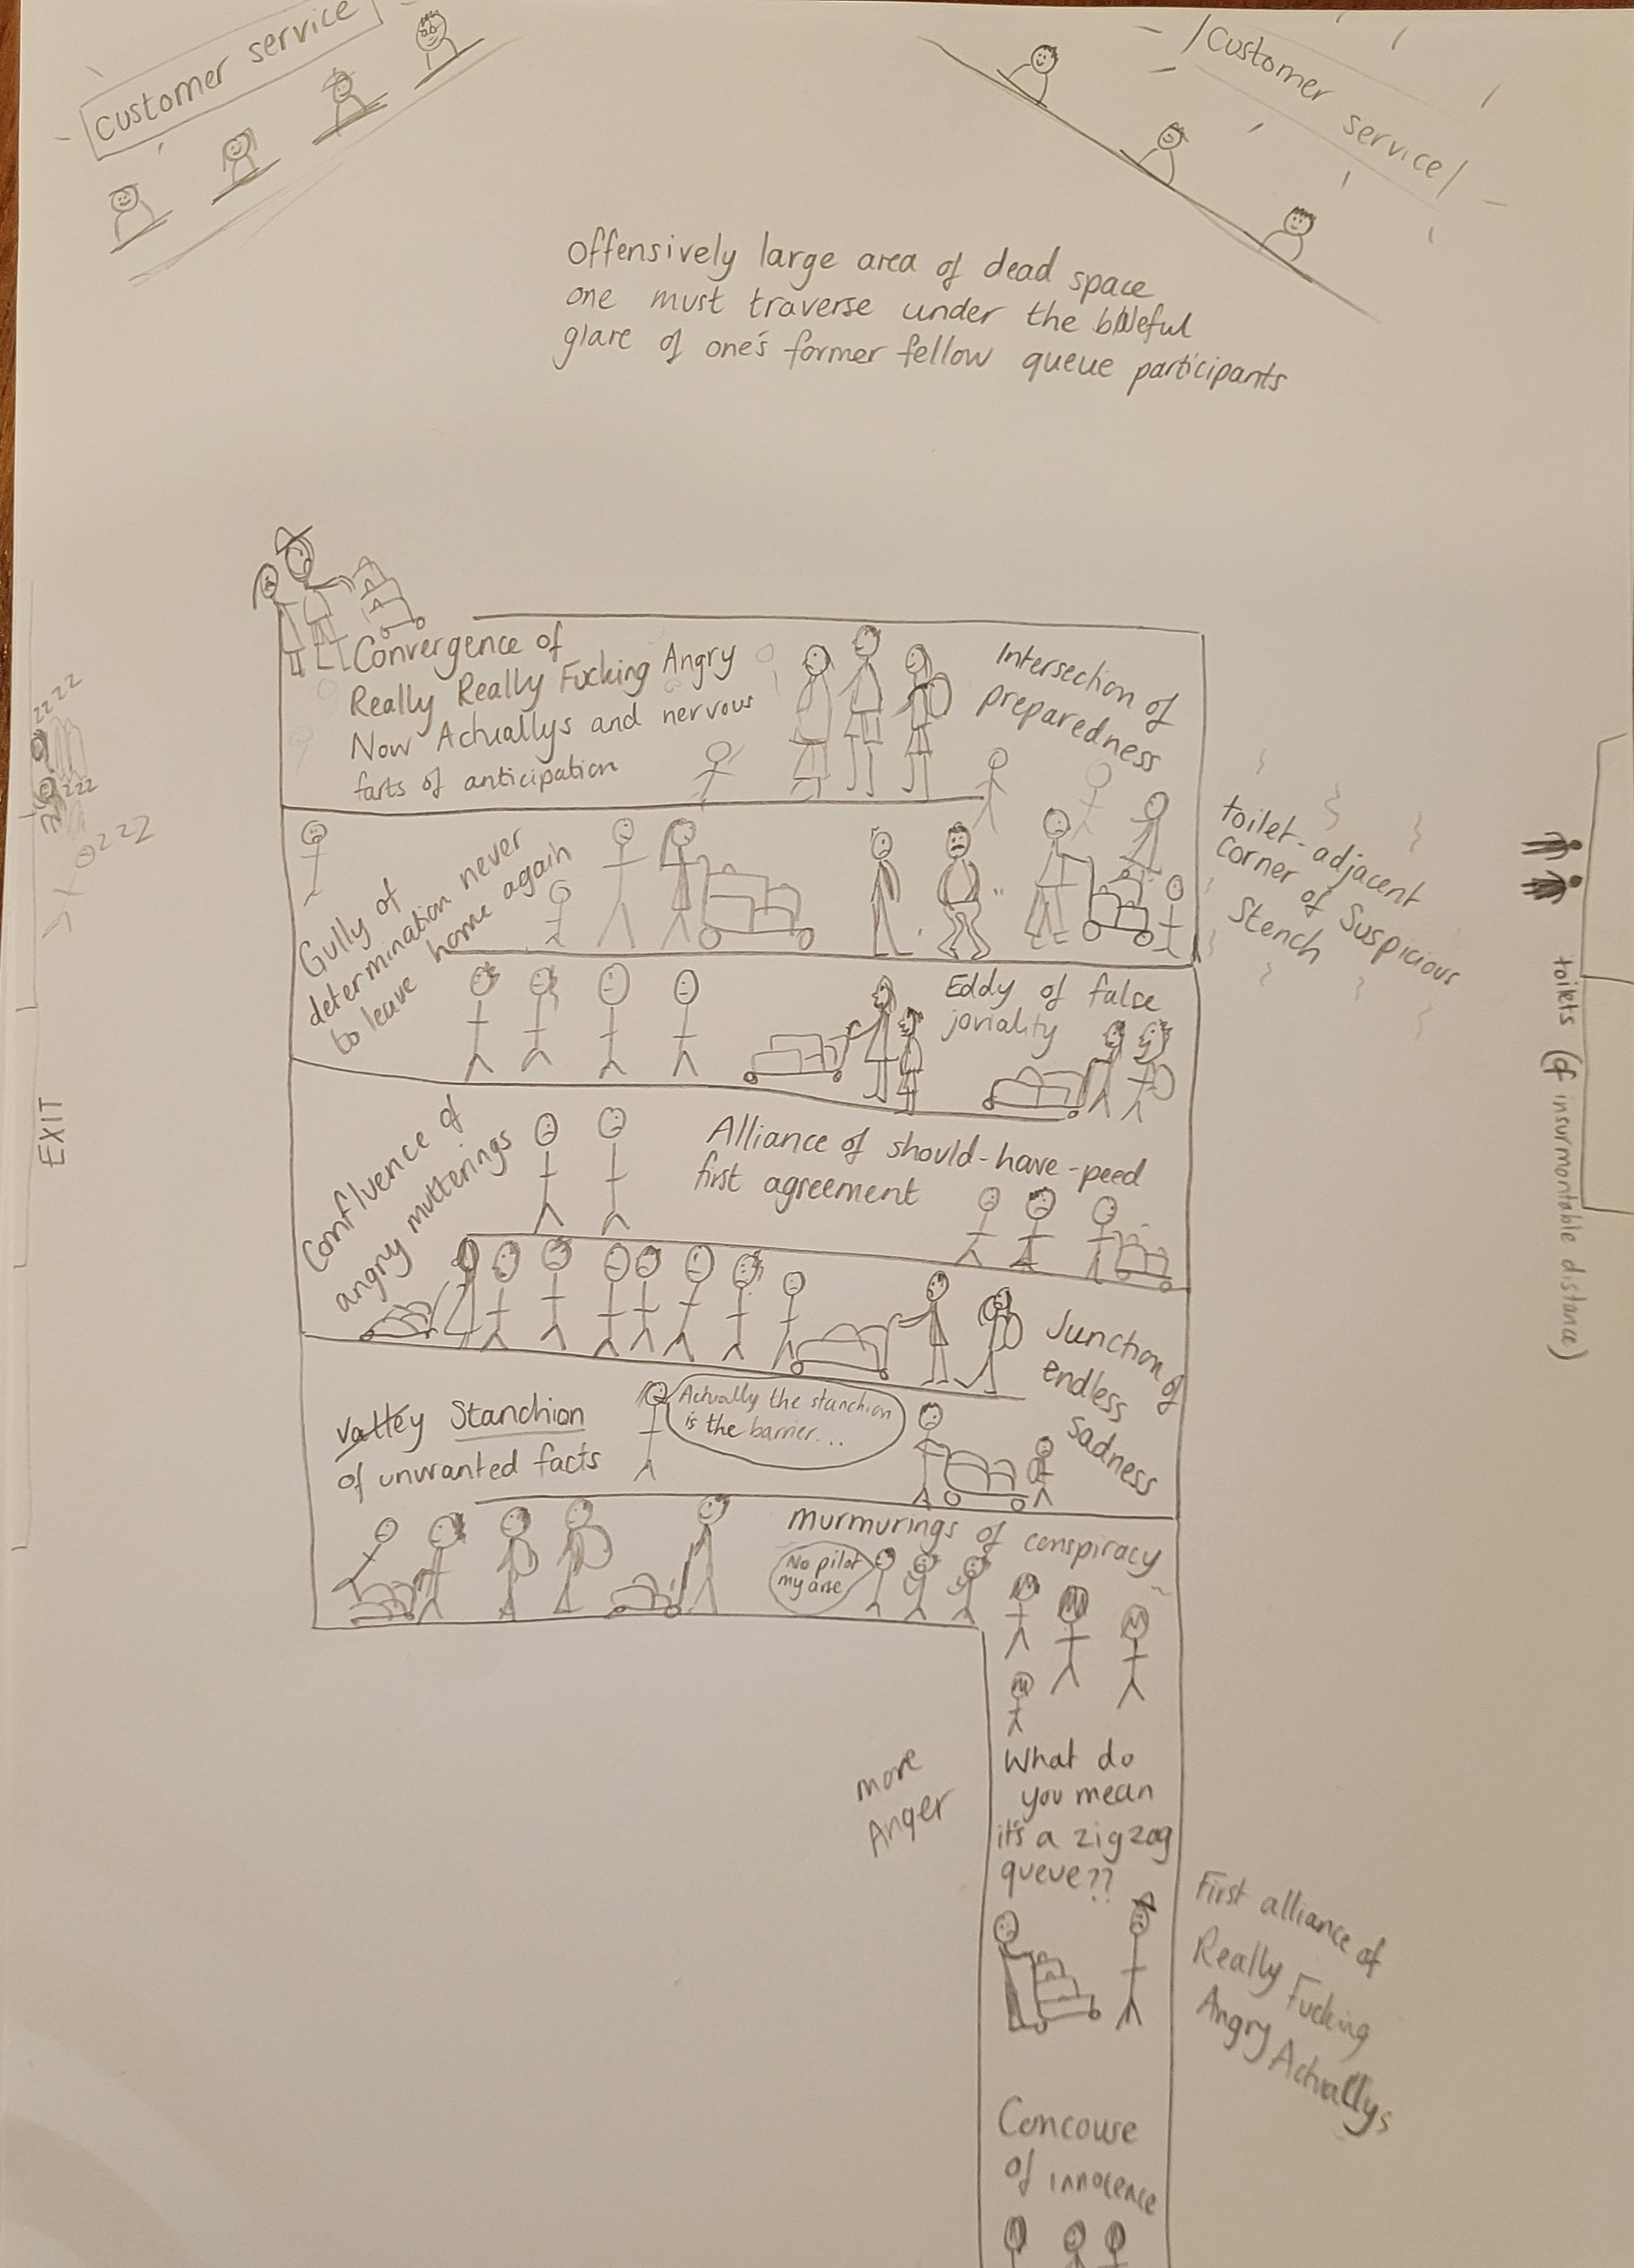 Customer service
Customer service
Offensively large area of dead space
one must traverse under the baleful
glare of one's former fellow queue participants
Convergence of
Really Really Fucking Angry
Now Actuallys and nervous
farts of anticipation
Intersection of
preparedness
zzzz
zzz
zzz
toilet-adjacent
corner of Suspicious
Stench
Gully of
determination never
to leave home again
Eddy of false
joviality
toilets (of insurmontable distance)
EXIT
Confluence of
angry mutterings
Alliance of should-have-peed
first agreement
Junction of
endless
sadness
Valley Stanchion
of unwanted facts
Actually the stanchion
is the barrier...
Murmurings of conspiracy
No pilot
my arse
More
Anger
What do
you mean
it's a zigzag
queue??
First alliance of
Really Fucking
Angry Actuallys
Concouse
of innocence